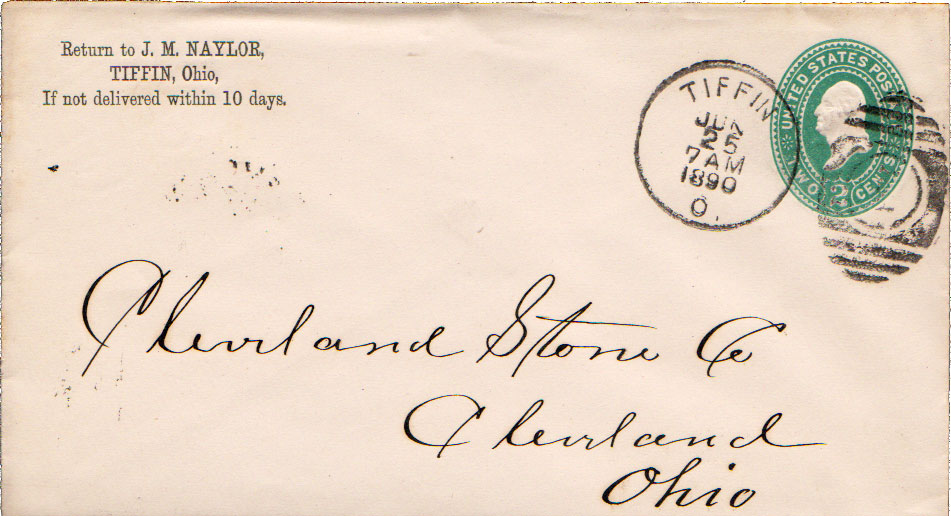 Return to J. M. NAYLOR,
TIFFIN, Ohio,
If not delivered within 10 days.
TIFFIN
JUN
25
7 AM
1890
O.
UNITED STATES POSTAGE
TWO 2 CENTS
Cleveland Stone Co
Cleveland
Ohio